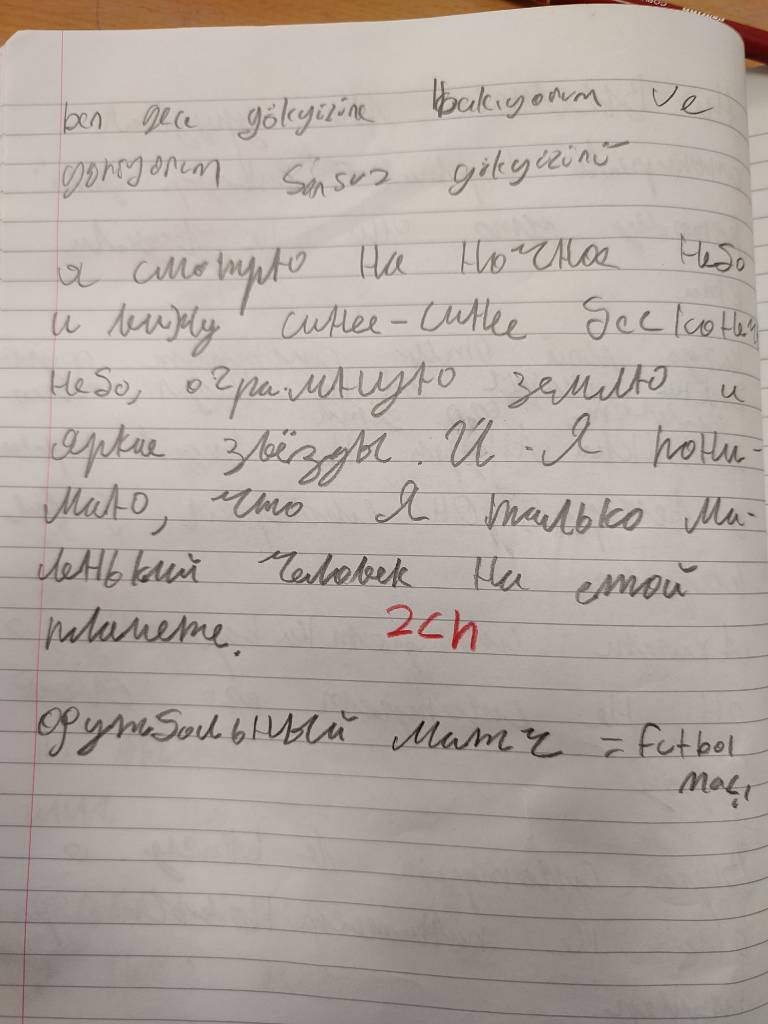 ben gece gökyizüne bakıyorum ve
görsyorum sonsuz gökyizünü
я смотрю на ночное небо
и вижу синее-синее бесконеч
небо, огра.мную землю и
яркие звёзды. И - Я пони-
маю, что Я только ма-
ленький человек на етой
планете. 2ch
футбольный матч = futbol
maçı